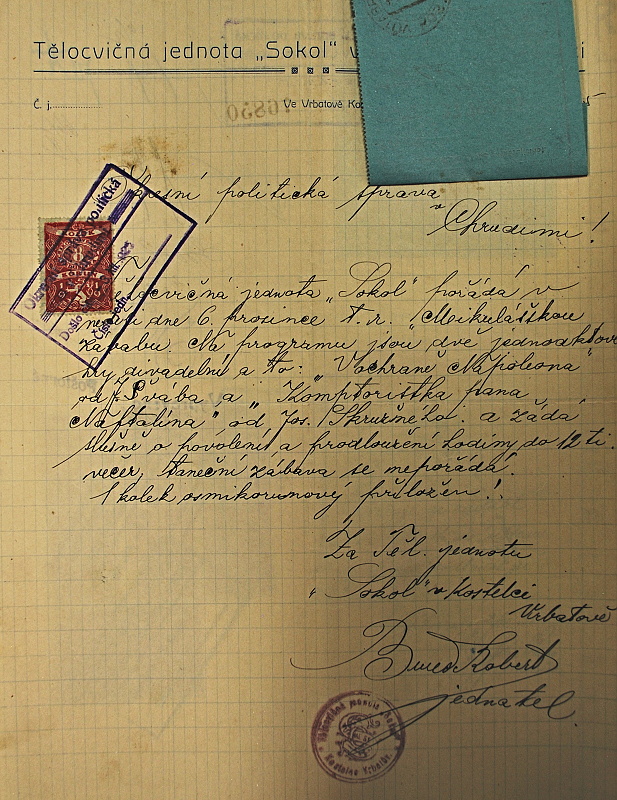 Tělocvičná jednota „Sokol” v
Č. j.
Ve Vrbatově Kos
16820
Okresní politická správa
v
Chrudimi!
Tělocvičná jednota „Sokol” pořádá v
neděli dne 6. prosince t. r. „Mikulášskou
zábavu. Na programu jsou dvě jednoaktové
hry divadelní a to: V ochraně Napoleona”
od Švába a „Komptoristka pana
Naftalína” od Jos. Skružného. a žádá
slušně o povolení a prodloužení hodiny do 12 ti.
večer, taneční zábava se nepořádá.
1 kolek osmikorunový přiložen!
Za Těl. jednotu
„Sokol” v Kostelci
Vrbatově
Robert
jednatel.